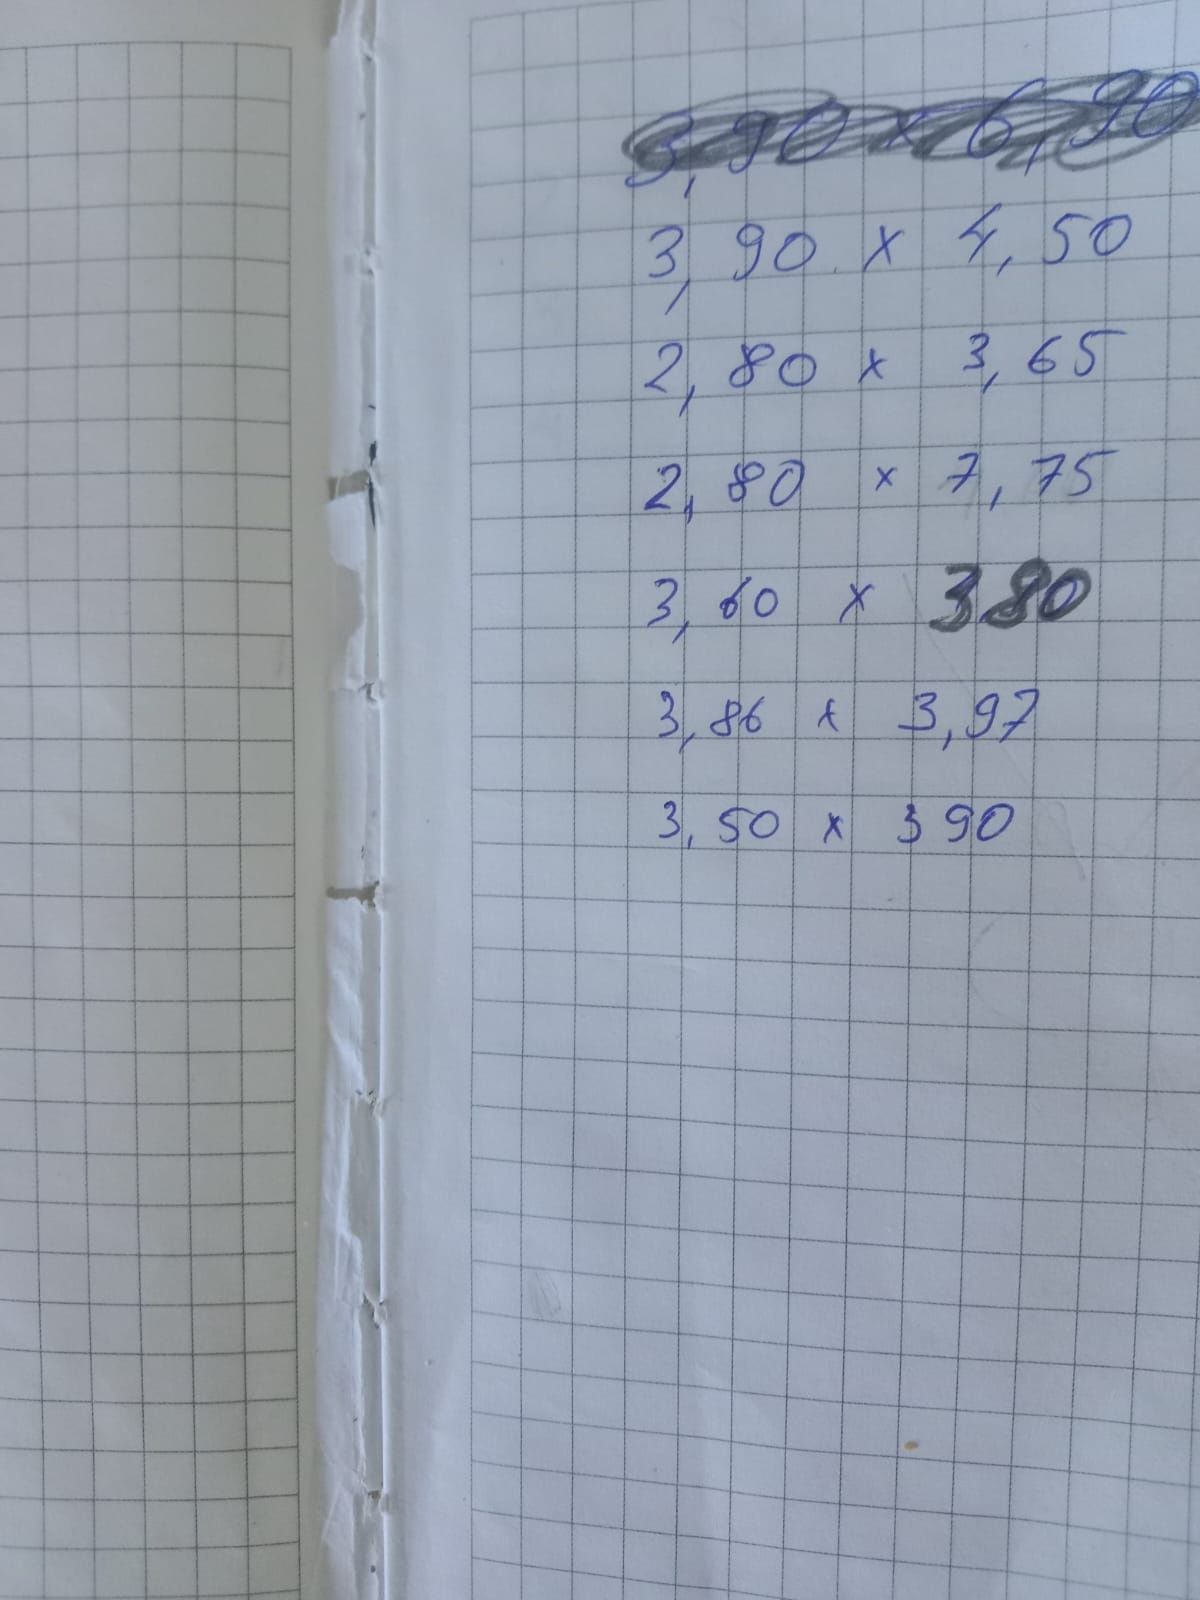 3,90 x 6,90
3,90 x 4,50
2,80 x 3,65
2,80 x 7,75
3,60 x 380
3,86 x 3,97
3,50 x 390